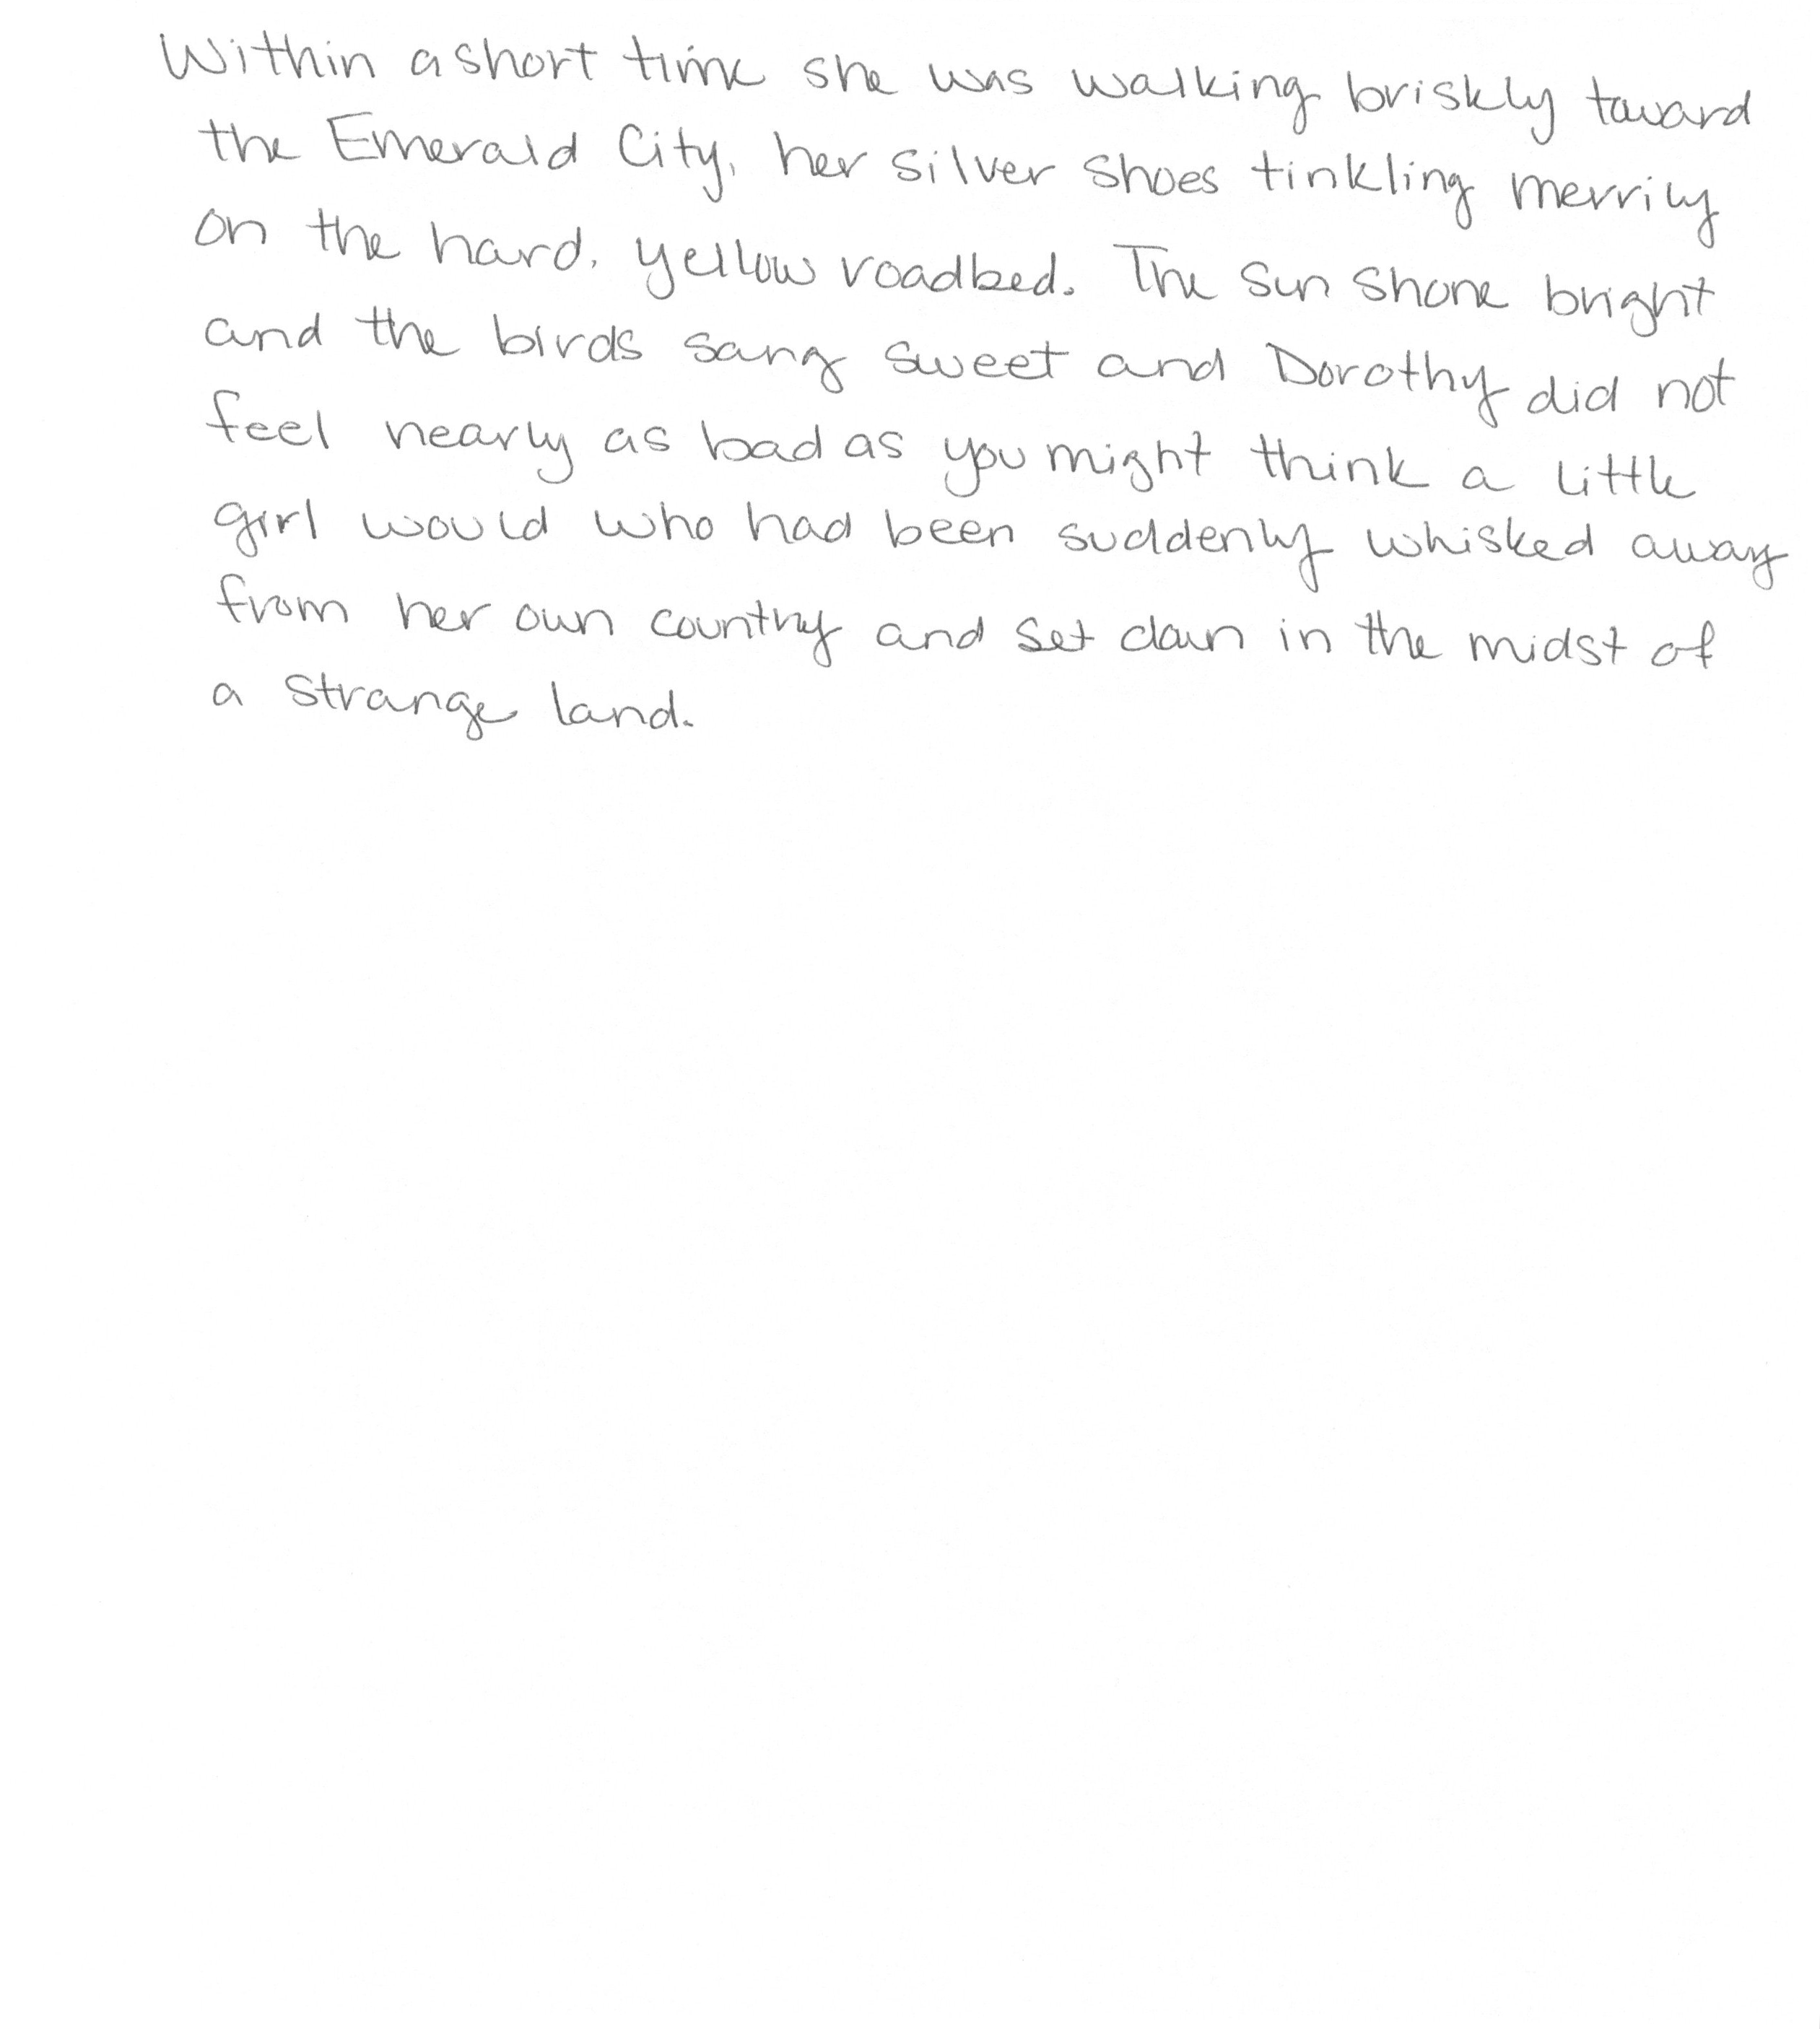 Within a short time she was walking briskly toward
the Emerald City, her silver shoes tinkling merrily
on the hard, yellow roadbed. The sun shone bright
and the birds sang sweet and Dorothy did not
feel nearly as bad as you might think a little
girl would who had been suddenly whisked away
from her own country and set down in the midst of
a strange land.